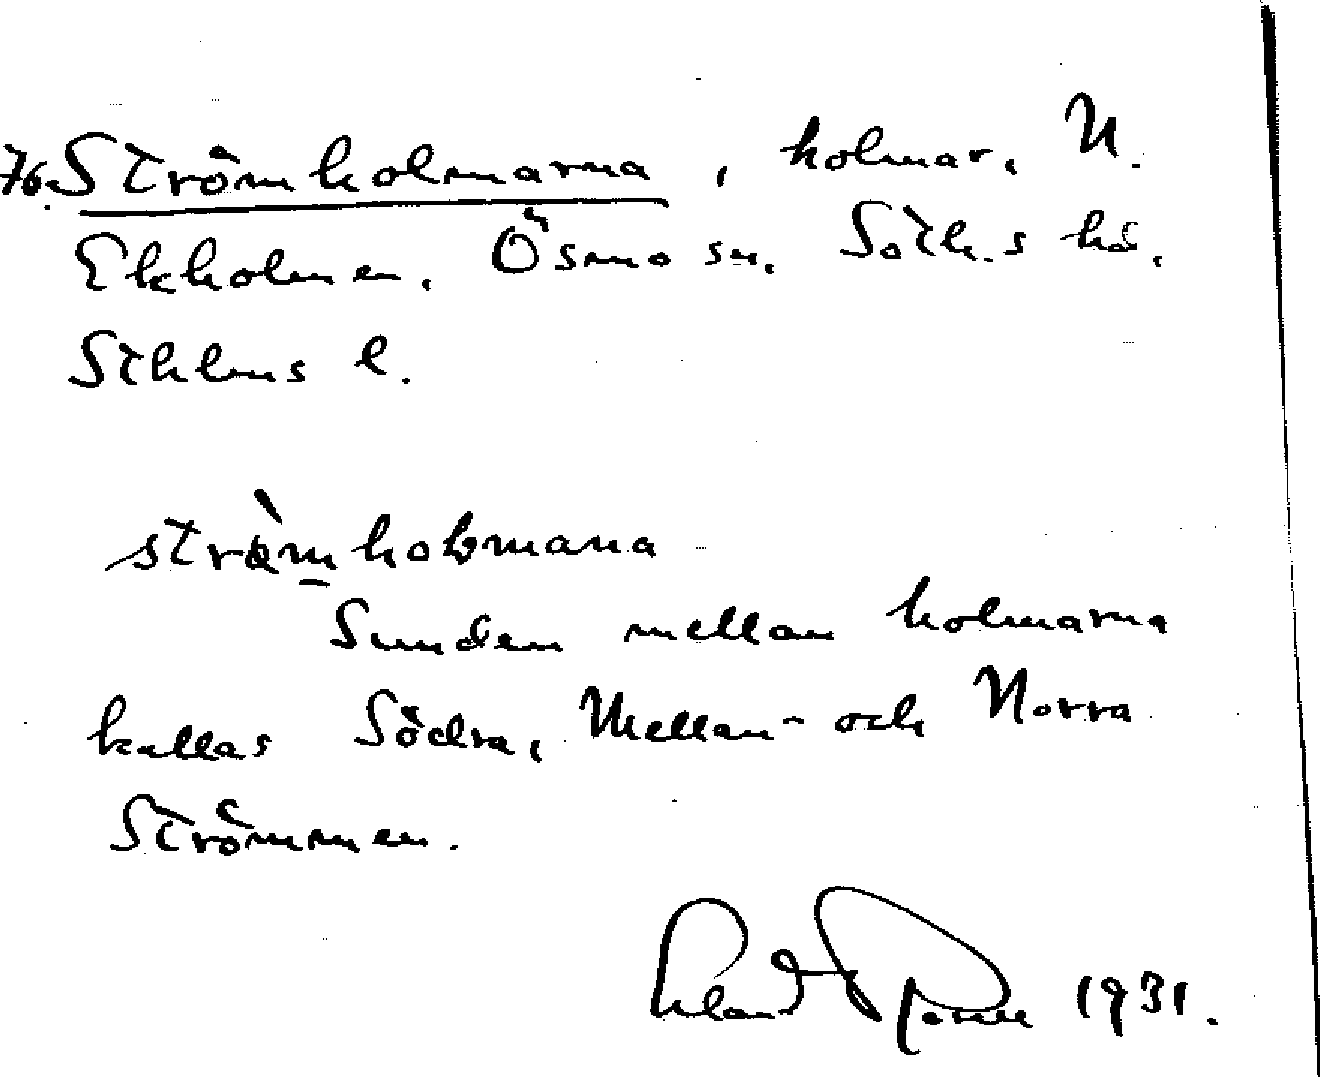 76. Strömholmarna, holmar, N.
Ekholmen. Ösmo sn. Soth.s hd,
Sthlms l.
holmana
Sunden mellan holmarna
kallas Södra, Mellan- och Norra
Strömmen.
1931.